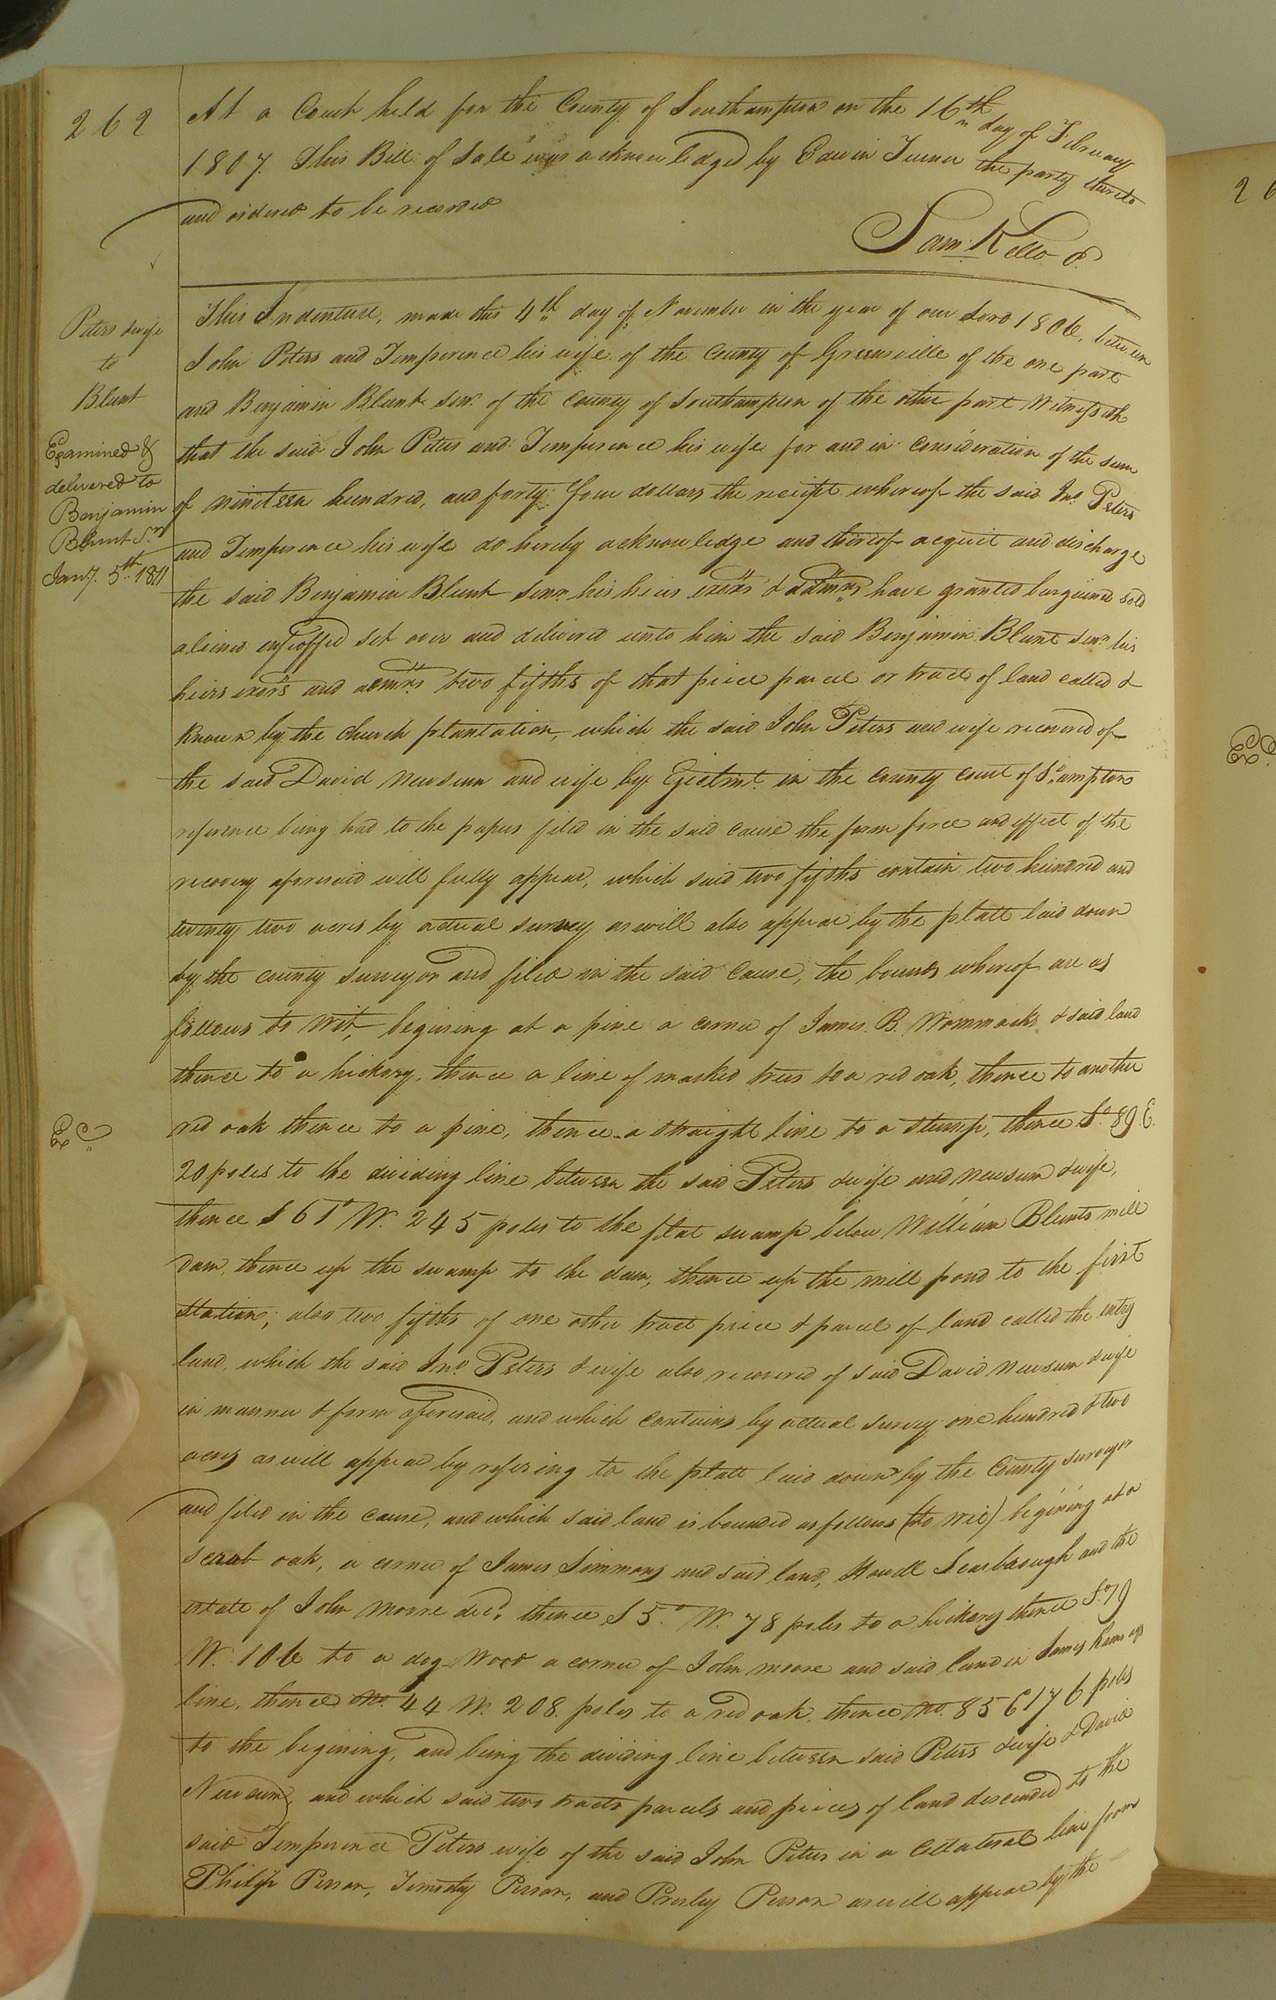 262
At a Court held for the County of Southampton on the 16th day of February
1807. This Bill of Sale was acknowledged by Edwin Turner the party thereto
and ordered to be recorded
Sam: Kello C.
Peters & wife
to
Blunt
Examined &
delivered to
Benjamin
Blunt Snr
Jany. 5th 1811
Ex
This Indenture, made this 4th day of November in the year of our Lord 1806, between
John Peters and Temperence his wife of the County of Greensville of the one part
and Benjamin Blunt senr. of the County of Southampton of the other part Witnesseth
that the said John Peters and Temperence his wife for and in consideration of the sum
of nineteen hundred, and forty four dollars the receipt whereof the said Jno. Peters
and Temperence his wife do hereby acknowledge and thereof acquit and discharge
the said Benjamin Blunt senr. his heirs exers & admrs have granted bargained sold
aliened enfeoffed set over and delivered unto him the said Benjamin Blunt senr his
heirs exers and admrs two fifths of that piece parcel or tract of land called &
known by the Church plantation, which the said John Peters and wife recovered of
the said David Newsum and wife by Ejectmt. in the County Court of So.ampton
reference being had to the papers filed in the said cause the form force and effect of the
recovery aforesaid will fully appear, which said two fifths contain two hundred and
twenty two acres by actual survey as will also appear by the platt laid down
by the county surveyor and filed in the said cause, the bounds whereof are as
follows to wit, begining at a pine a corner of James B. Wommacks & said land
thence to a hickory, thence a line of marked trees to a red oak, thence to another
red oak thence to a pine, thence a straight line to a stump, thence So. 89 E.
20 poles to the dividing line between the said Peters & wife and Newsum & wife,
thence S 61° W. 245 poles to the flat swamp below William Blunts mill
dam, thence up the swamp to the dam, thence up the mill pond to the first
station; also two fifths of one other tract piece & parcel of land called the entry
land, which the said Jno. Peters & wife also recovered of said David Newsum & wife
in manner & form aforesaid, and which contains by actual survey one hundred & two
acres as will appear by refering to the platt laid down by the County surveyor
and filed in the cause, and which said land is bounded as follows (to wit) begining at a
scrub oak, a corner of James Simmons and said land, Howell Scarbrough and the
estate of John Moore decd. thence S 5° W. 78 poles to a hickory thence So. 79
W. 106 to a dog wood a corner of John Moore and said land in James
line, thence No. 44 W. 208 poles to a red oak, thence No. 85 E 176 poles
to the begining, and being the dividing line between said Peters & wife & David
Newsum, and which said two tracts parcels and pieces of land descended to the
said Temperence Peters wife of the said John Peters in a collateral line from
Philip Person, Timothy Person, and Presley Person as will appear by the